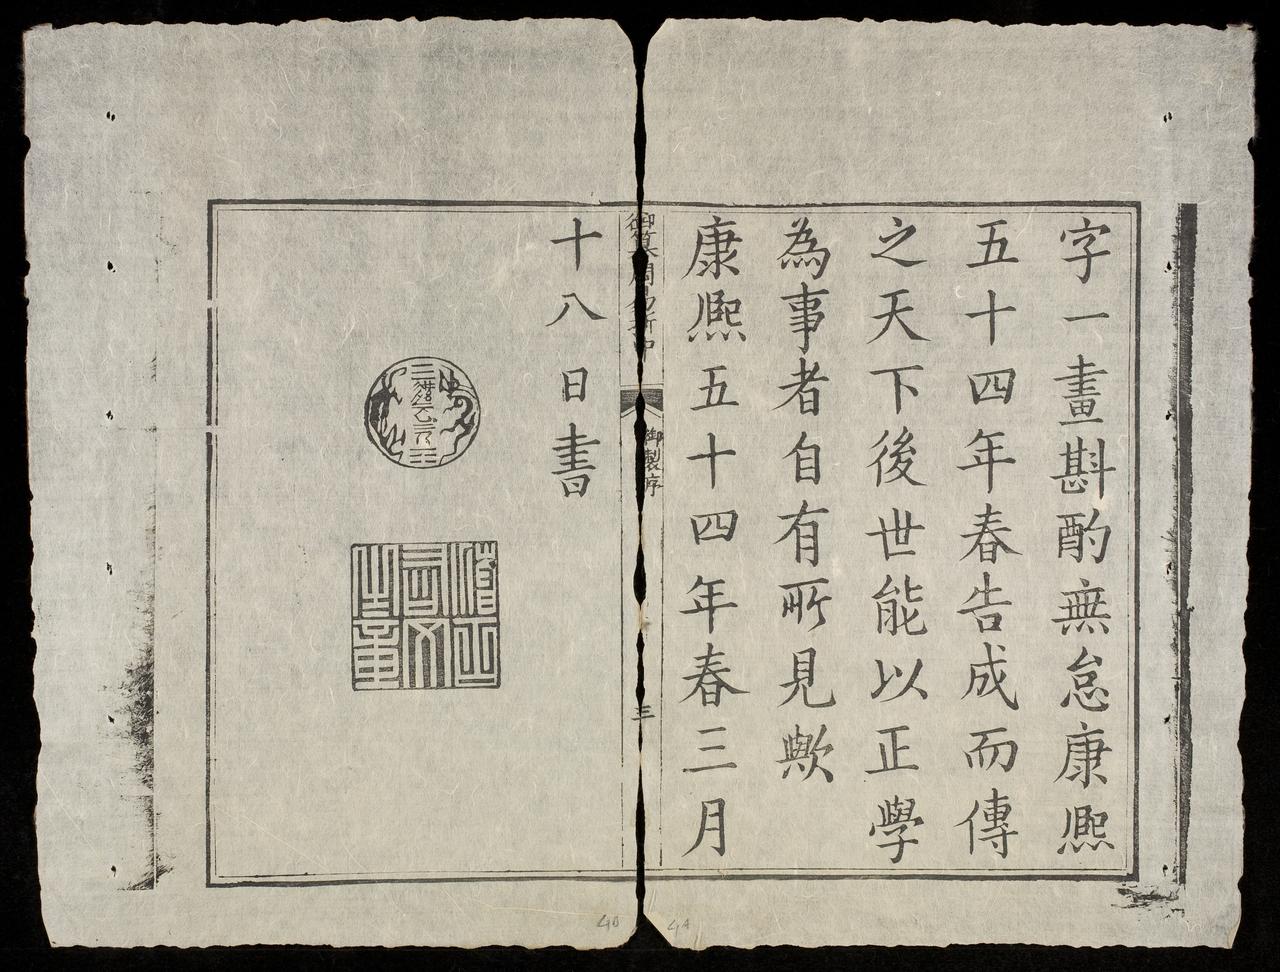 字一畫斟酌無怠康熙
五十四年春告成而傳
之天下後世能以正學
為事者自有所見歟
康熙五十四年春三月
御纂周易折中
御製序
三
十八日書
稽古右文之章
4B
4A